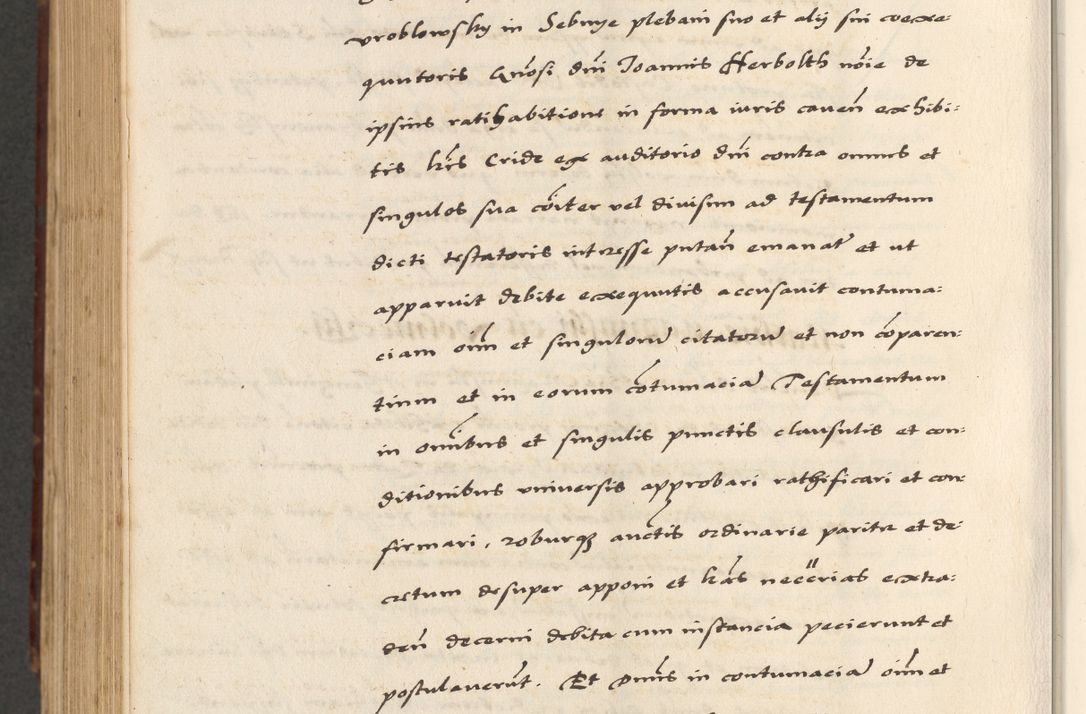 vroblowsky in Sebnye plebani suo et alij sui coexe-
quutoris Gñosi dñi Joannis Herbolth nõie de
ipsius ratihabitione in forma iuris caveñ exhibi-
tis lr̃is Cride ex auditorio dñi contra omnes et
singulos sua cõiter vel divisim ad testamentum
dicti testatoris interesse putañ emanat̃ et ut
apparuit debite exequutis accusavit contuma-
ciam oĩm et singulorũ citatorũ et non cõparen-
tium et in eorum cõtumaciã Testamentum
in omĩbus et singulis punctis clausulis et con-
ditionibus universis approbari rathificari et con-
firmari, roburqꝫ auctis ordinarie pariter et de-
cretum desuper apponi et lr̃as necc̃rias extra-
deñ decerni debita cum instancia pecierunt et
postulaverũt. Et Dñus in contumaciã oĩm et